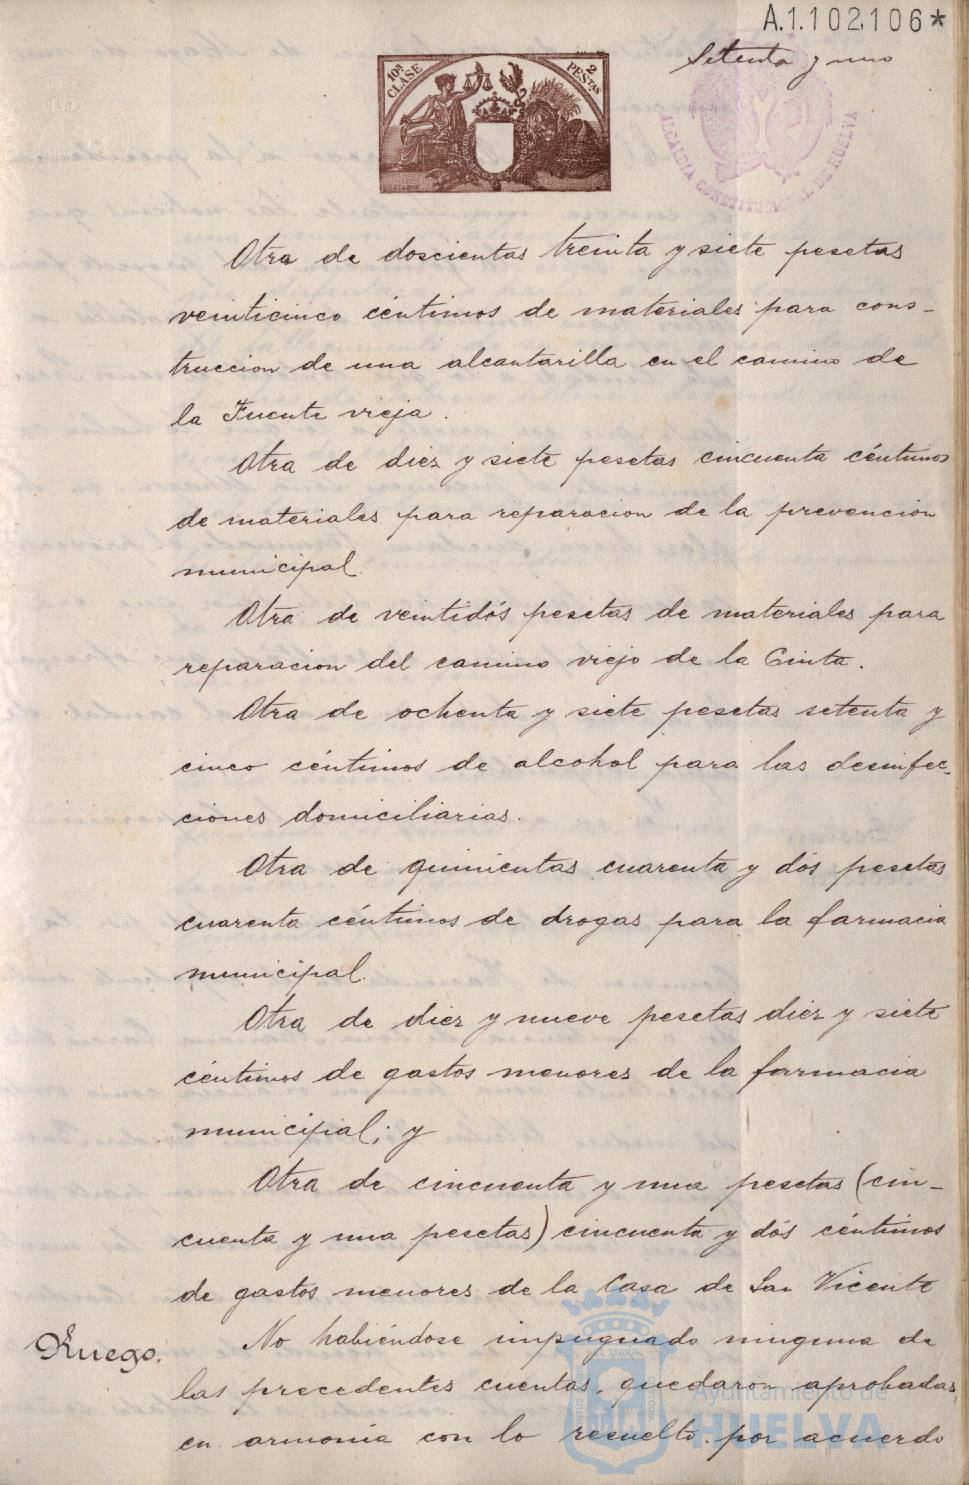 A.1.102.106*
Setenta y uno
10ª CLASE
2 PESTAS
ALCALDIA CONSTITUCIONAL DE HUELVA
Otra de doscientas treinta y siete pesetas
veinticinco céntimos de materiales para cons-
truccion de una alcantarilla en el camino de
la Fuente vieja.
Otra de diez y siete pesetas cincuenta céntimos
de materiales para reparacion de la prevencion
municipal.
Otra de veintidós pesetas de materiales para
reparacion del camino viejo de la Cinta.
Otra de ochenta y siete pesetas setenta y
cinco céntimos de alcohol para las desinfec-
ciones domiciliarias.
Otra de quinientas cuarenta y dós pesetas
cuarenta céntimos de drogas para la farmacia
municipal.
Otra de diez y nueve pesetas diez y siete
céntimos de gastos menores de la farmacia
municipal; y
Otra de cincuenta y una pesetas (cin-
cuenta y una pesetas) cincuenta y dós céntimos
de gastos menores de la Casa de San Vicente
Ruego.
No habiéndose impugnado ninguna de
las precedentes cuentas, quedaron aprobadas,
en armonia con lo resuelto por acuerdo
Ayuntamiento de
HUELVA